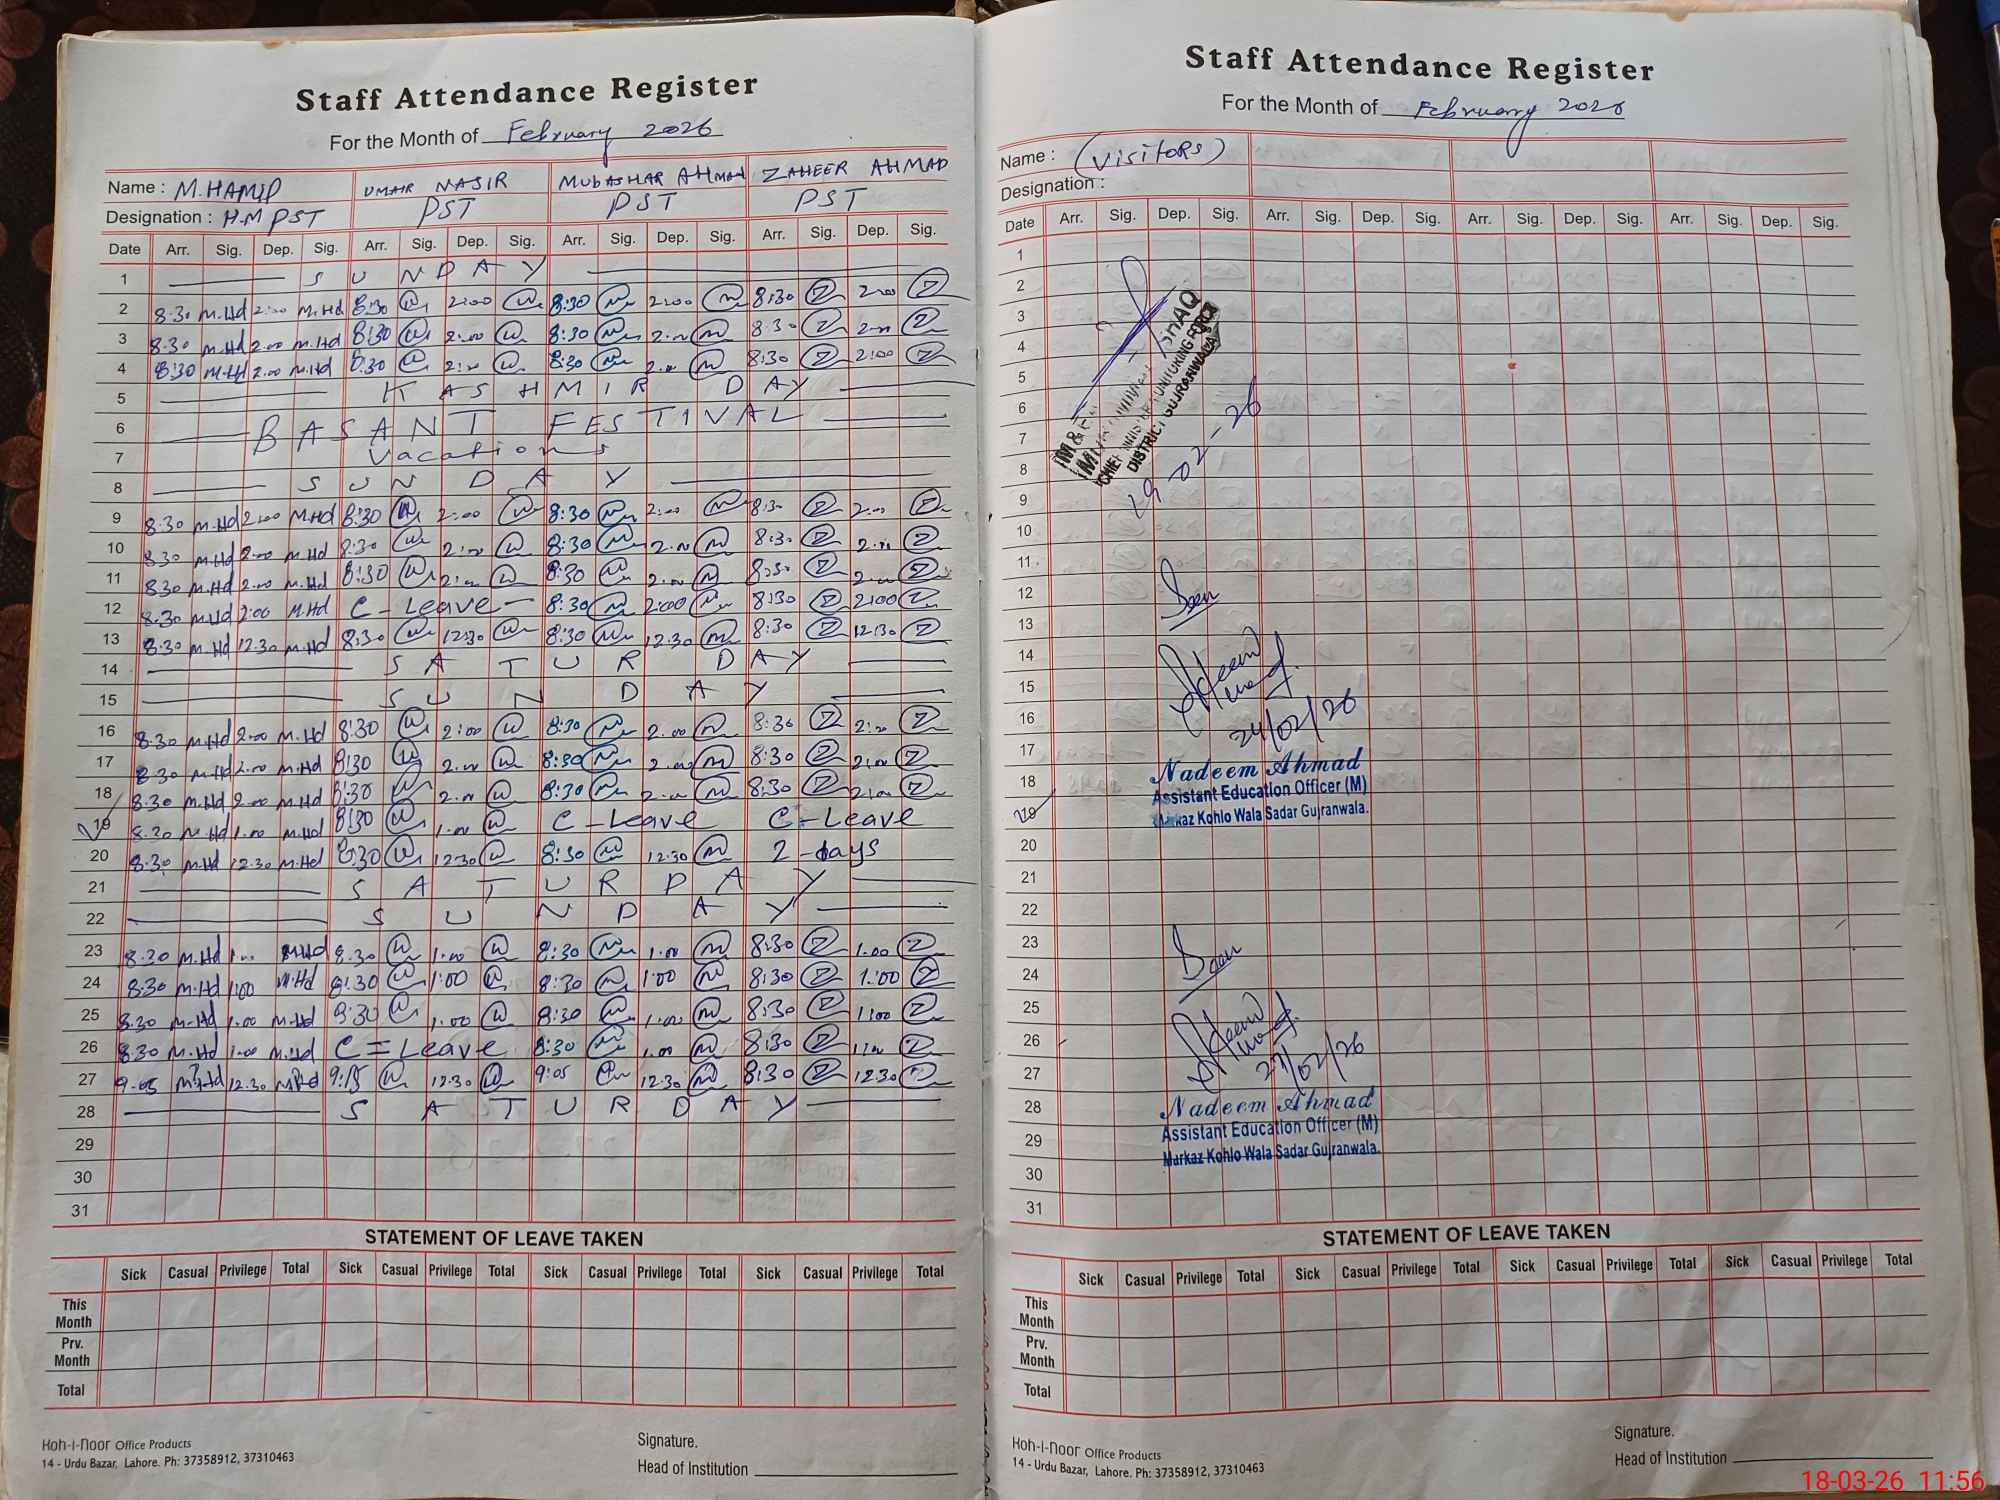 Staff Attendance Register
For the Month of February 2026
Name : M.HAMID UMAIR NASIR MUBASHAR AHMAD ZAHEER AHMAD
Designation : H.M PST PST PST PST
Date Arr. Sig. Dep. Sig. Arr. Sig. Dep. Sig. Arr. Sig. Dep. Sig. Arr. Sig. Dep. Sig.
1 SUNDAY
2 8.30 M.Hd 2:00 M.Hd 8:30 2:00 8:30 2:00 8:30 2:00
3 8.30 M.Hd 2.00 M.Hd 8:30 2:00 8:30 2:00 8:30 2:00
4 8:30 M.Hd 2.00 M.Hd 8:30 2:00 8:30 2:00 8:30 2:00
5 KASHMIR DAY
6 BASANT FESTIVAL
7 Vacations
8 SUNDAY
9 8.30 M.Hd 2:00 M.Hd 8:30 2:00 8:30 2:00 8:30 2:00
10 8.30 M.Hd 2.00 M.Hd 8:30 2:00 8:30 2:00 8:30 2:00
11 8.30 M.Hd 2.00 M.Hd 8:30 2:00 8:30 2:00 8:30 2:00
12 8.30 M.Hd 2:00 M.Hd C-Leave 8:30 2:00 8:30 2:00
13 8.30 M.Hd 12.30 M.Hd 8:30 12:30 8:30 12.30 8:30 12:30
14 SATURDAY
15 SUNDAY
16 8.30 M.Hd 2.00 M.Hd 8:30 2:00 8:30 2.00 8:30 2:00
17 8.30 M.Hd 2.00 M.Hd 8:30 2.00 8:30 2.00 8:30 2:00
18 8.30 M.Hd 2.00 M.Hd 8:30 2.00 8:30 2.00 8:30 2:00
19 8.30 M.Hd 1.00 M.Hd 8:30 1.00 C-Leave C-Leave
20 8:30 M.Hd 12.30 M.Hd 8:30 12:30 8:30 12.30 2-days
21 SATURDAY
22 SUNDAY
23 8.30 M.Hd 1.00 M.Hd 8.30 1.00 8:30 1.00 8:30 1.00
24 8:30 M.Hd 1:00 M.Hd 8:30 1:00 8:30 1:00 8:30 1:00
25 8.30 M.Hd 1.00 M.Hd 8:30 1.00 8:30 1.00 8:30 1:00
26 8.30 M.Hd 1.00 M.Hd C=Leave 8:30 1.00 8:30 1:00
27 9.05 M.Hd 12.30 M.Hd 9:15 12.30 9:05 12:30 8:30 12:30
28 SATURDAY
29
30
31
STATEMENT OF LEAVE TAKEN
Sick Casual Privilege Total Sick Casual Privilege Total Sick Casual Privilege Total Sick Casual Privilege Total
This Month
Prv. Month
Total
Signature.
Head of Institution
Koh-i-noor Office Products
14 - Urdu Bazar, Lahore. Ph: 37358912, 37310463
Staff Attendance Register
For the Month of February 2026
Name : (VISITORS)
Designation :
Date Arr. Sig. Dep. Sig. Arr. Sig. Dep. Sig. Arr. Sig. Dep. Sig. Arr. Sig. Dep. Sig.
1
2
3
4
5
6
7
8
9
10
11
12
13
14
15
16
17
18
19
20
21
22
23
24
25
26
27
28
29
30
31
DISTRICT GUJRANWALA
19-02-26
Seen
24/02/26
Nadeem Ahmad
Assistant Education Officer (M)
Markaz Kohlo Wala Sadar Gujranwala.
Seen
27/02/26
Nadeem Ahmad
Assistant Education Officer (M)
Markaz Kohlo Wala Sadar Gujranwala.
STATEMENT OF LEAVE TAKEN
Sick Casual Privilege Total Sick Casual Privilege Total Sick Casual Privilege Total Sick Casual Privilege Total
This Month
Prv. Month
Total
Signature.
Head of Institution
Koh-i-noor Office Products
14 - Urdu Bazar, Lahore. Ph: 37358912, 37310463
18-03-26 11:56